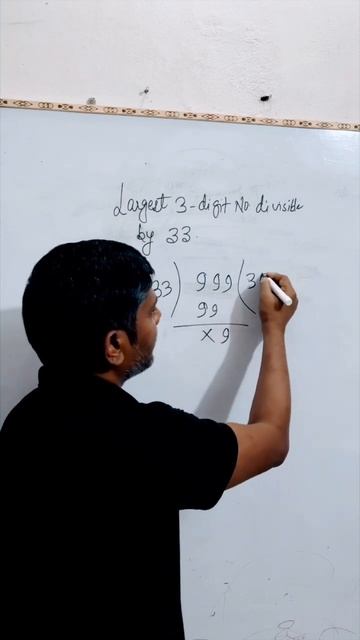 Largest 3-digit No divisible
by 33.
33) 999 (3
99
x 9